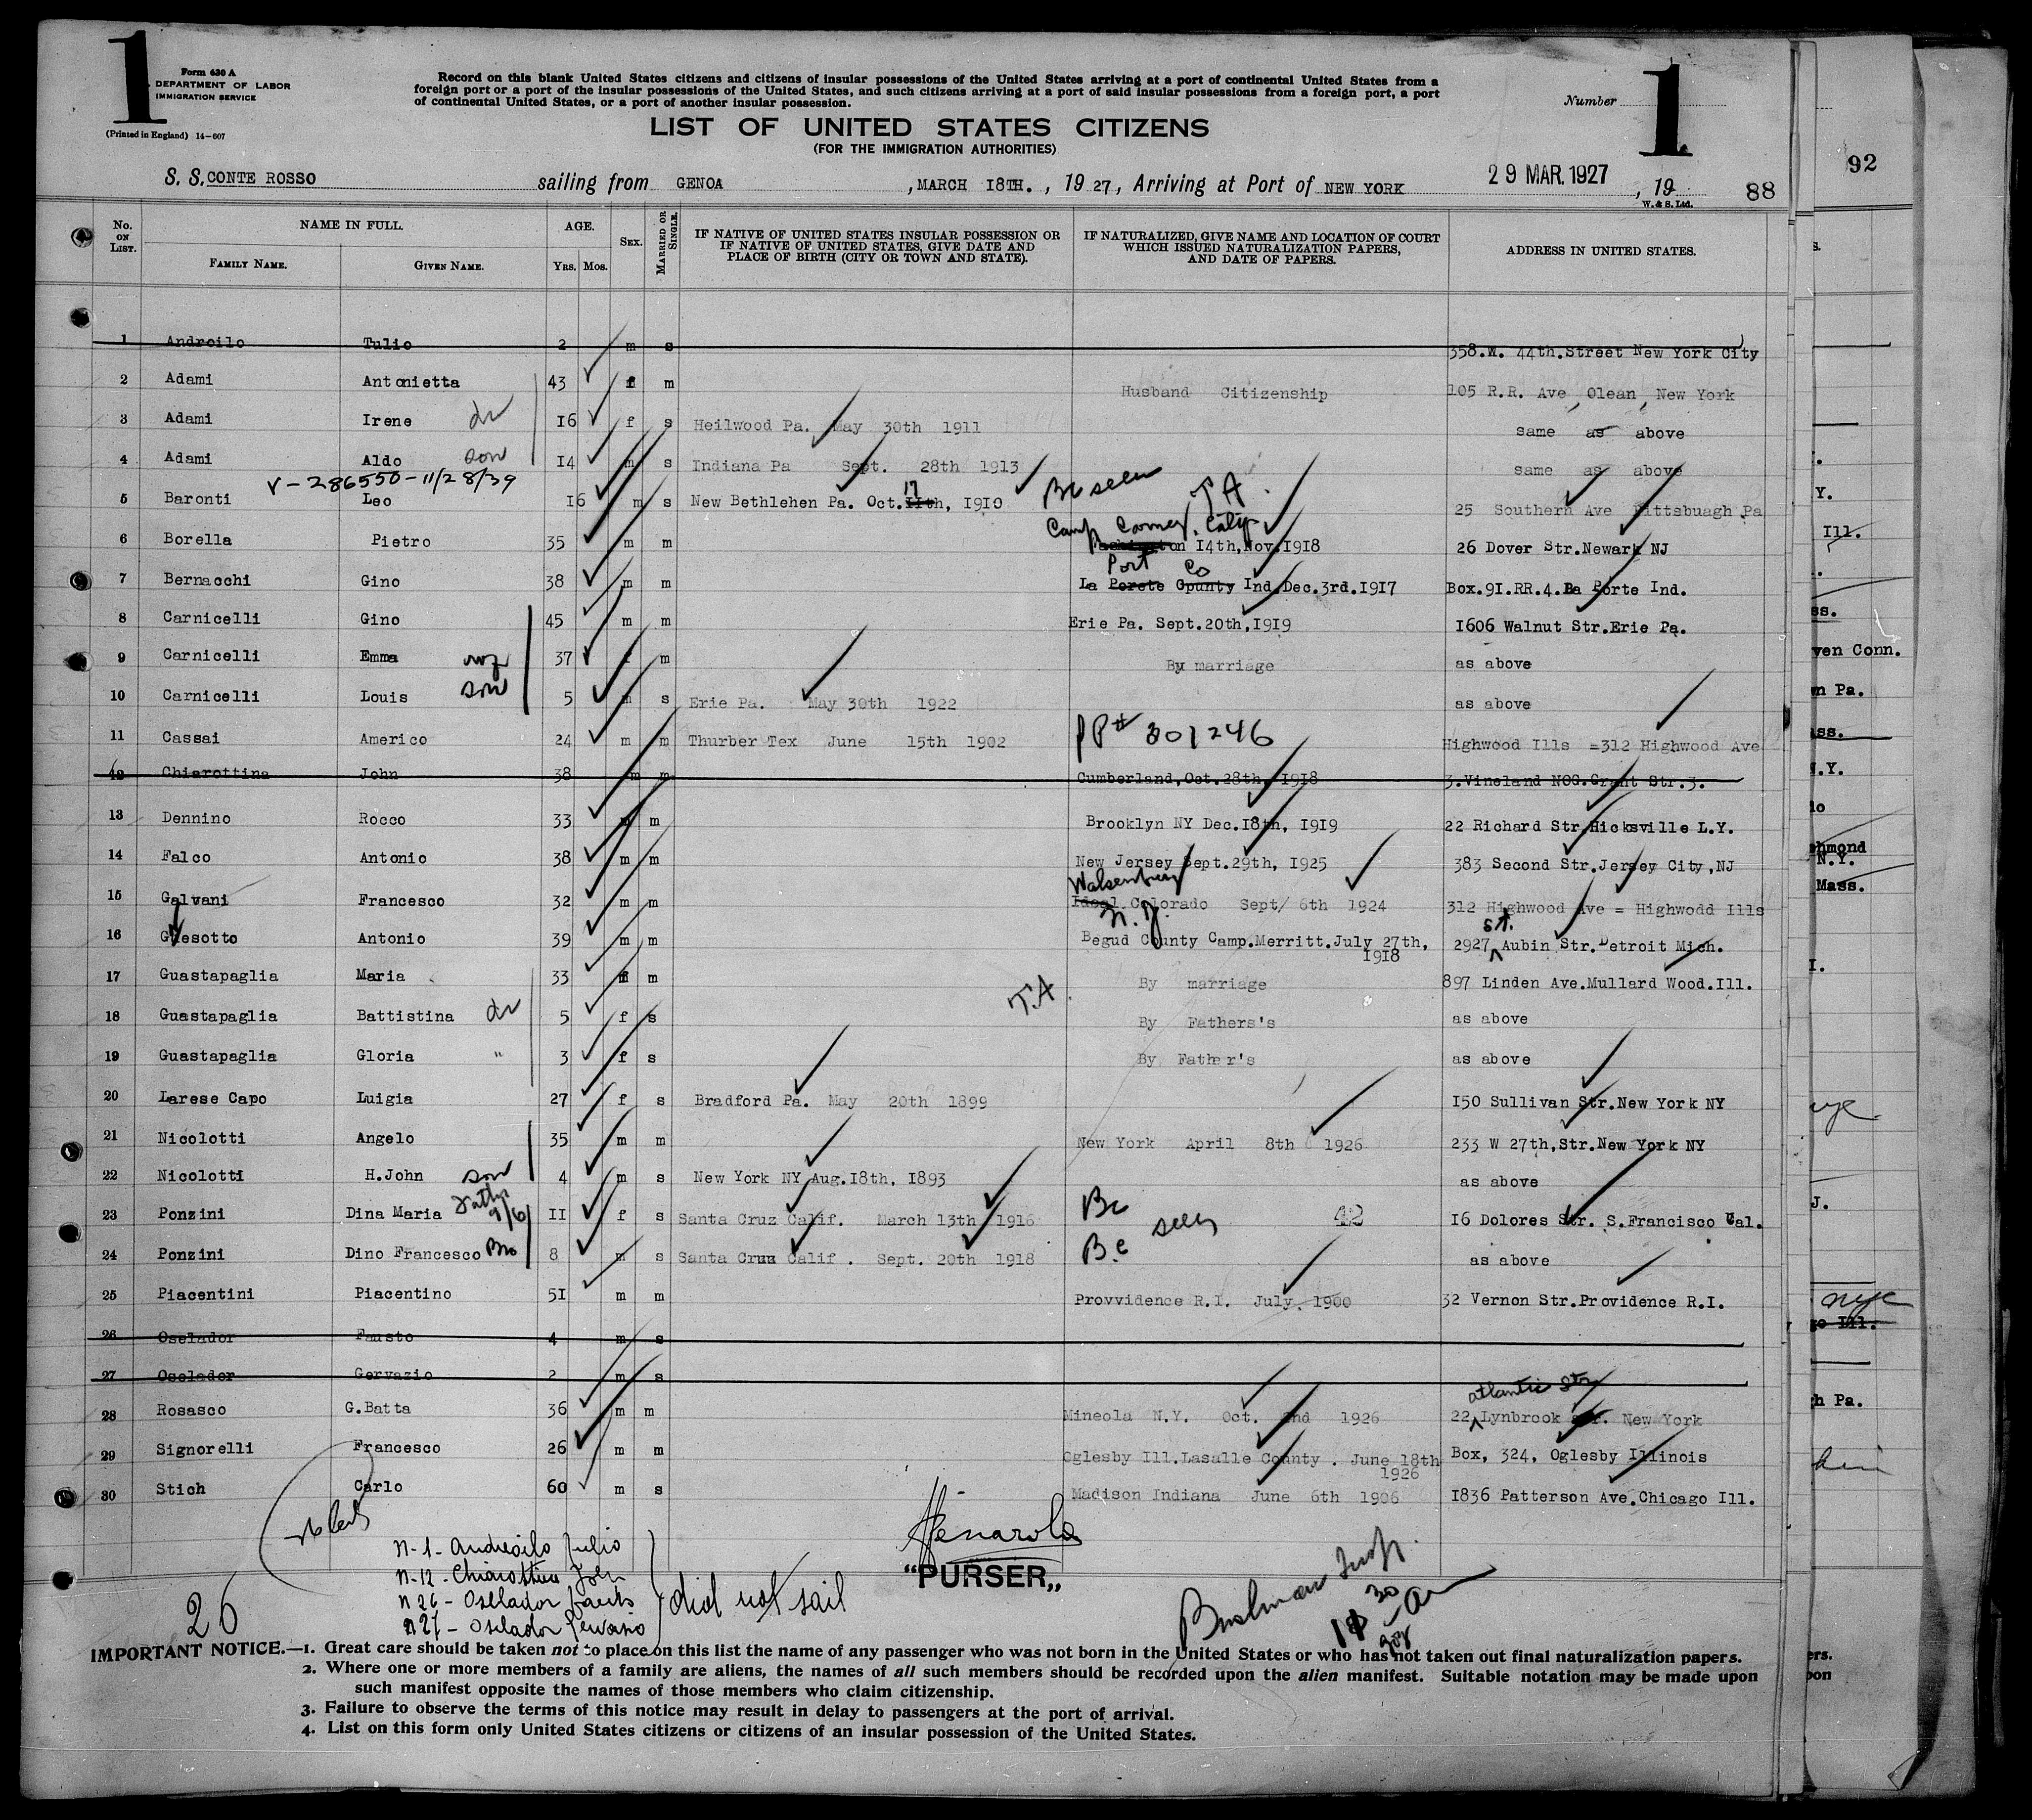 1
Form 630 A
DEPARTMENT OF LABOR
IMMIGRATION SERVICE
(Printed in England) 14-607
Record on this blank United States citizens and citizens of insular possessions of the United States arriving at a port of continental United States from a
foreign port or a port of the insular possessions of the United States, and such citizens arriving at a port of said insular possessions from a foreign port, a port
of continental United States, or a port of another insular possession.
Number 1
LIST OF UNITED STATES CITIZENS
(FOR THE IMMIGRATION AUTHORITIES)
S. S. CONTE ROSSO sailing from GENOA , MARCH 18TH. , 1927, Arriving at Port of NEW YORK 29 MAR. 1927 , 19
W. & S. Ltd.
88
92
No. ON LIST. NAME IN FULL. FAMILY NAME. GIVEN NAME. AGE. YRS. MOS. SEX. MARRIED OR SINGLE. IF NATIVE OF UNITED STATES INSULAR POSSESSION OR IF NATIVE OF UNITED STATES, GIVE DATE AND PLACE OF BIRTH (CITY OR TOWN AND STATE). IF NATURALIZED, GIVE NAME AND LOCATION OF COURT WHICH ISSUED NATURALIZATION PAPERS, AND DATE OF PAPERS. ADDRESS IN UNITED STATES.
1 Androilo Tulio 2 m s 358.W. 44th.Street New York City
2 Adami Antonietta 43 f m Husband Citizenship 105 R.R. Ave, Olean, New York
3 Adami Irene 16 f s Heilwood Pa. May 30th 1911 same as above
4 Adami Aldo son 14 m s Indiana Pa Sept. 28th 1913 same as above
V-286550-11/28/39
5 Baronti Leo 16 m s New Bethlehen Pa. Oct. 11th, 17 1910 BC seen T A. 25 Southern Ave Pittsbuagh Pa
6 Borella Pietro 35 m m Camp 14th, Nov. 1918 26 Dover Str. Newark NJ
7 Bernacchi Gino 38 m m La Porete County Port Co Ind. Dec. 3rd. 1917 Box. 91. RR. 4. La Porte Ind.
8 Carnicelli Gino 45 m m Erie Pa. Sept. 20th, 1919 1606 Walnut Str. Erie Pa.
9 Carnicelli Emma 37 f m By marriage as above
10 Carnicelli Louis son 5 m s Erie Pa. May 30th 1922 as above
11 Cassai Americo 24 m m Thurber Tex June 15th 1902 PP# 301246 Highwood Ills =312 Highwood Ave
12 Chiarottina John 38 m m Cumberland, Oct. 28th, 1918 3. Vineland NOG. Grant Str. 3.
13 Dennino Rocco 33 m m Brooklyn NY Dec. 18th, 1919 22 Richard Str. Hicksville L.Y.
14 Falco Antonio 38 m m New Jersey Sept. 29th, 1925 383 Second Str. Jersey City, NJ
15 Galvani Francesco 32 m m Walsenburg Ideal Colorado Sept/ 6th 1924 312 Highwood Ave = Highwodd Ills
16 Guesotto Antonio 39 m m N.J. Begud County Camp. Merritt. July 27th, 1918 2927 St. Aubin Str. Detroit Mich.
17 Guastapaglia Maria 33 f m By marriage 897 Linden Ave. Mullard Wood. Ill.
T.A.
18 Guastapaglia Battistina 5 f s By Fathers's as above
19 Guastapaglia Gloria " 3 f s By Father's as above
20 Larese Capo Luigia 27 f s Bradford Pa. May 20th 1899 150 Sullivan Str. New York NY
21 Nicolotti Angelo 35 m m New York April 8th 1926 233 W 27th, Str. New York NY
22 Nicolotti H. John son 4 m s New York NY Aug. 18th, 1893 as above
23 Ponzini Dina Maria 11 f s Santa Cruz Calif. March 13th 1916 BC seen 42 16 Dolores Str. S. Francisco Cal.
24 Ponzini Dino Francesco Bro 8 m s Santa Cruz Calif. Sept. 20th 1918 B.C as above
25 Piacentini Piacentino 51 m m Provvidence R.I. July. 1900 32 Vernon Str. Providence R.I.
26 Oselador Fausto 4 m s
27 Oselador Gervazio 2 m s
28 Rosasco G. Batta 36 m m Mineola N.Y. Oct. 2nd 1926 22 atlantic Str Lynbrook str. New York
29 Signorelli Francesco 26 m m Oglesby Ill. Lasalle County. June 18th 1926 Box, 324, Oglesby Illinois
30 Stich Carlo 60 m s Madison Indiana June 6th 1906 1836 Patterson Ave. Chicago Ill.
N-1- Androilo Julio
N-12- Chiarottina John
N 26- Osellador Fausto
N 27- Oselador Gervasio
did not sail
26
"PURSER„
IMPORTANT NOTICE.—1. Great care should be taken not to place on this list the name of any passenger who was not born in the United States or who has not taken out final naturalization papers.
2. Where one or more members of a family are aliens, the names of all such members should be recorded upon the alien manifest. Suitable notation may be made upon
such manifest opposite the names of those members who claim citizenship.
3. Failure to observe the terms of this notice may result in delay to passengers at the port of arrival.
4. List on this form only United States citizens or citizens of an insular possession of the United States.